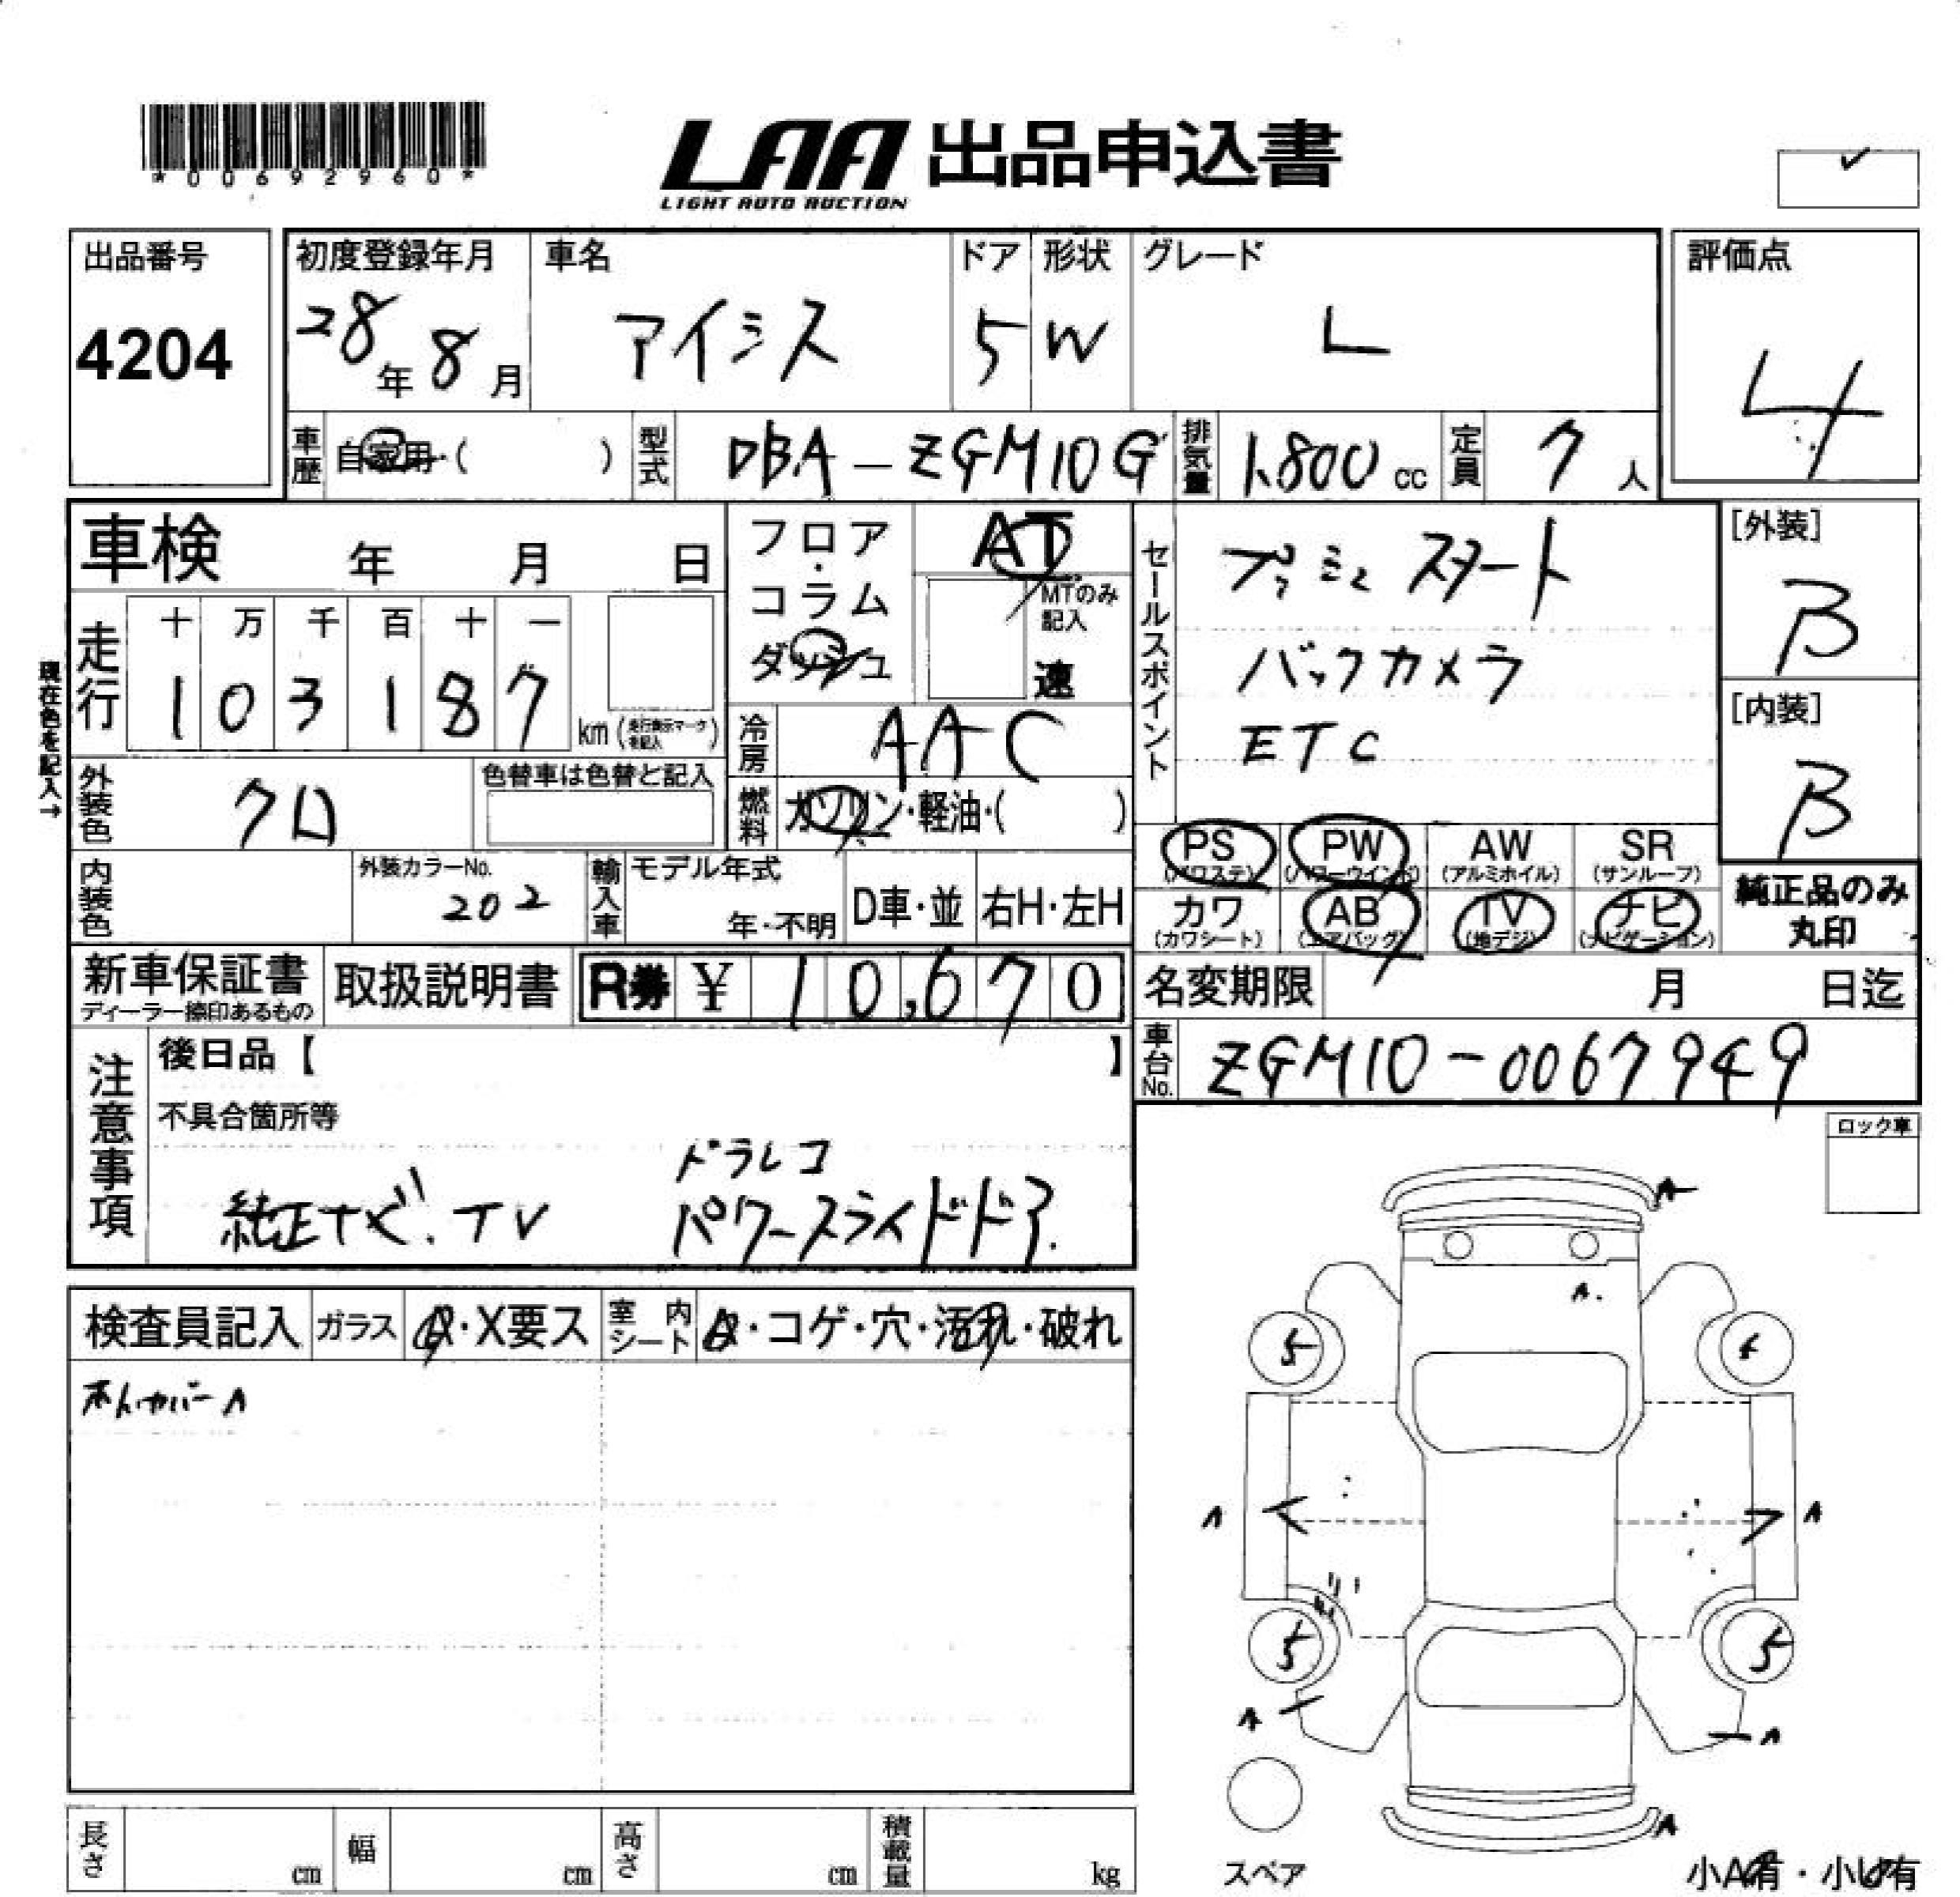 *00692960*
LAA 出品申込書
LIGHT AUTO AUCTION
出品番号 4204
初度登録年月 28年8月
車名 アイシス
ドア 5
形状 W
グレード L
評価点 4
車歴 自家用・( )
型式 DBA-ZGM10G
排気量 1,800cc
定員 7人
車検 年 月 日
現在色を記入→
走行 十万千百十一
103187 km (走行表示マークを記入)
フロア・コラム ダッシュ
AT
MTのみ記入
速
冷房 AAC
燃料 ガソリン・軽油・( )
セールスポイント
プッシュスタート
バックカメラ
ETC
[外装] B
[内装] B
外装色 クロ
色替車は色替と記入
内装色
外装カラーNo. 202
輸入車 モデル年式 年・不明 D車・並 右H・左H
PS (パワステ) PW (パワーウインド) AW (アルミホイル) SR (サンルーフ)
カワ (カワシート) AB (エアバッグ) TV (地デジ) ナビ (ナビゲーション)
純正品のみ丸印
新車保証書 ディーラー捺印あるもの
取扱説明書
R券 ¥ 10,670
名変期限 月 日迄
車台No. ZGM10-0067949
注意事項
後日品【 】
不具合箇所等
ドラレコ
純正ナビ.TV パワースライドドア.
ロック車
検査員記入 ガラス A・X要ス 室内シート A・コゲ・穴・汚れ・破れ
A
A
A
5
A
A
5
5
A
A
A
スペア
小A有・小U有
長さ cm 幅 cm 高さ cm 積載量 kg